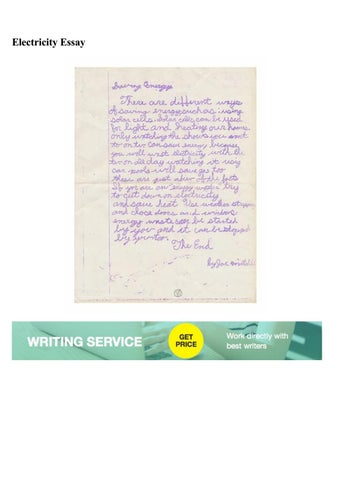 Electricity Essay
Saving Energy
There are different ways
of saving energy such as : using
solar cells. solar cells can be used
for light and heating our home.
only watching the shows you want
to on tv can save energy because
you will wast electricity with the
tv on all day watching it.
car pools will save gas for
these are just a few of the facts
If you are an energy waster try
to cut down on electricity
and save heat. Use weather stripping
and close doors and windows
energy waste can be started
by you and it can be stopped
by you too.
The End
by Joe
WRITING SERVICE
GET
PRICE
Work directly with
best writers